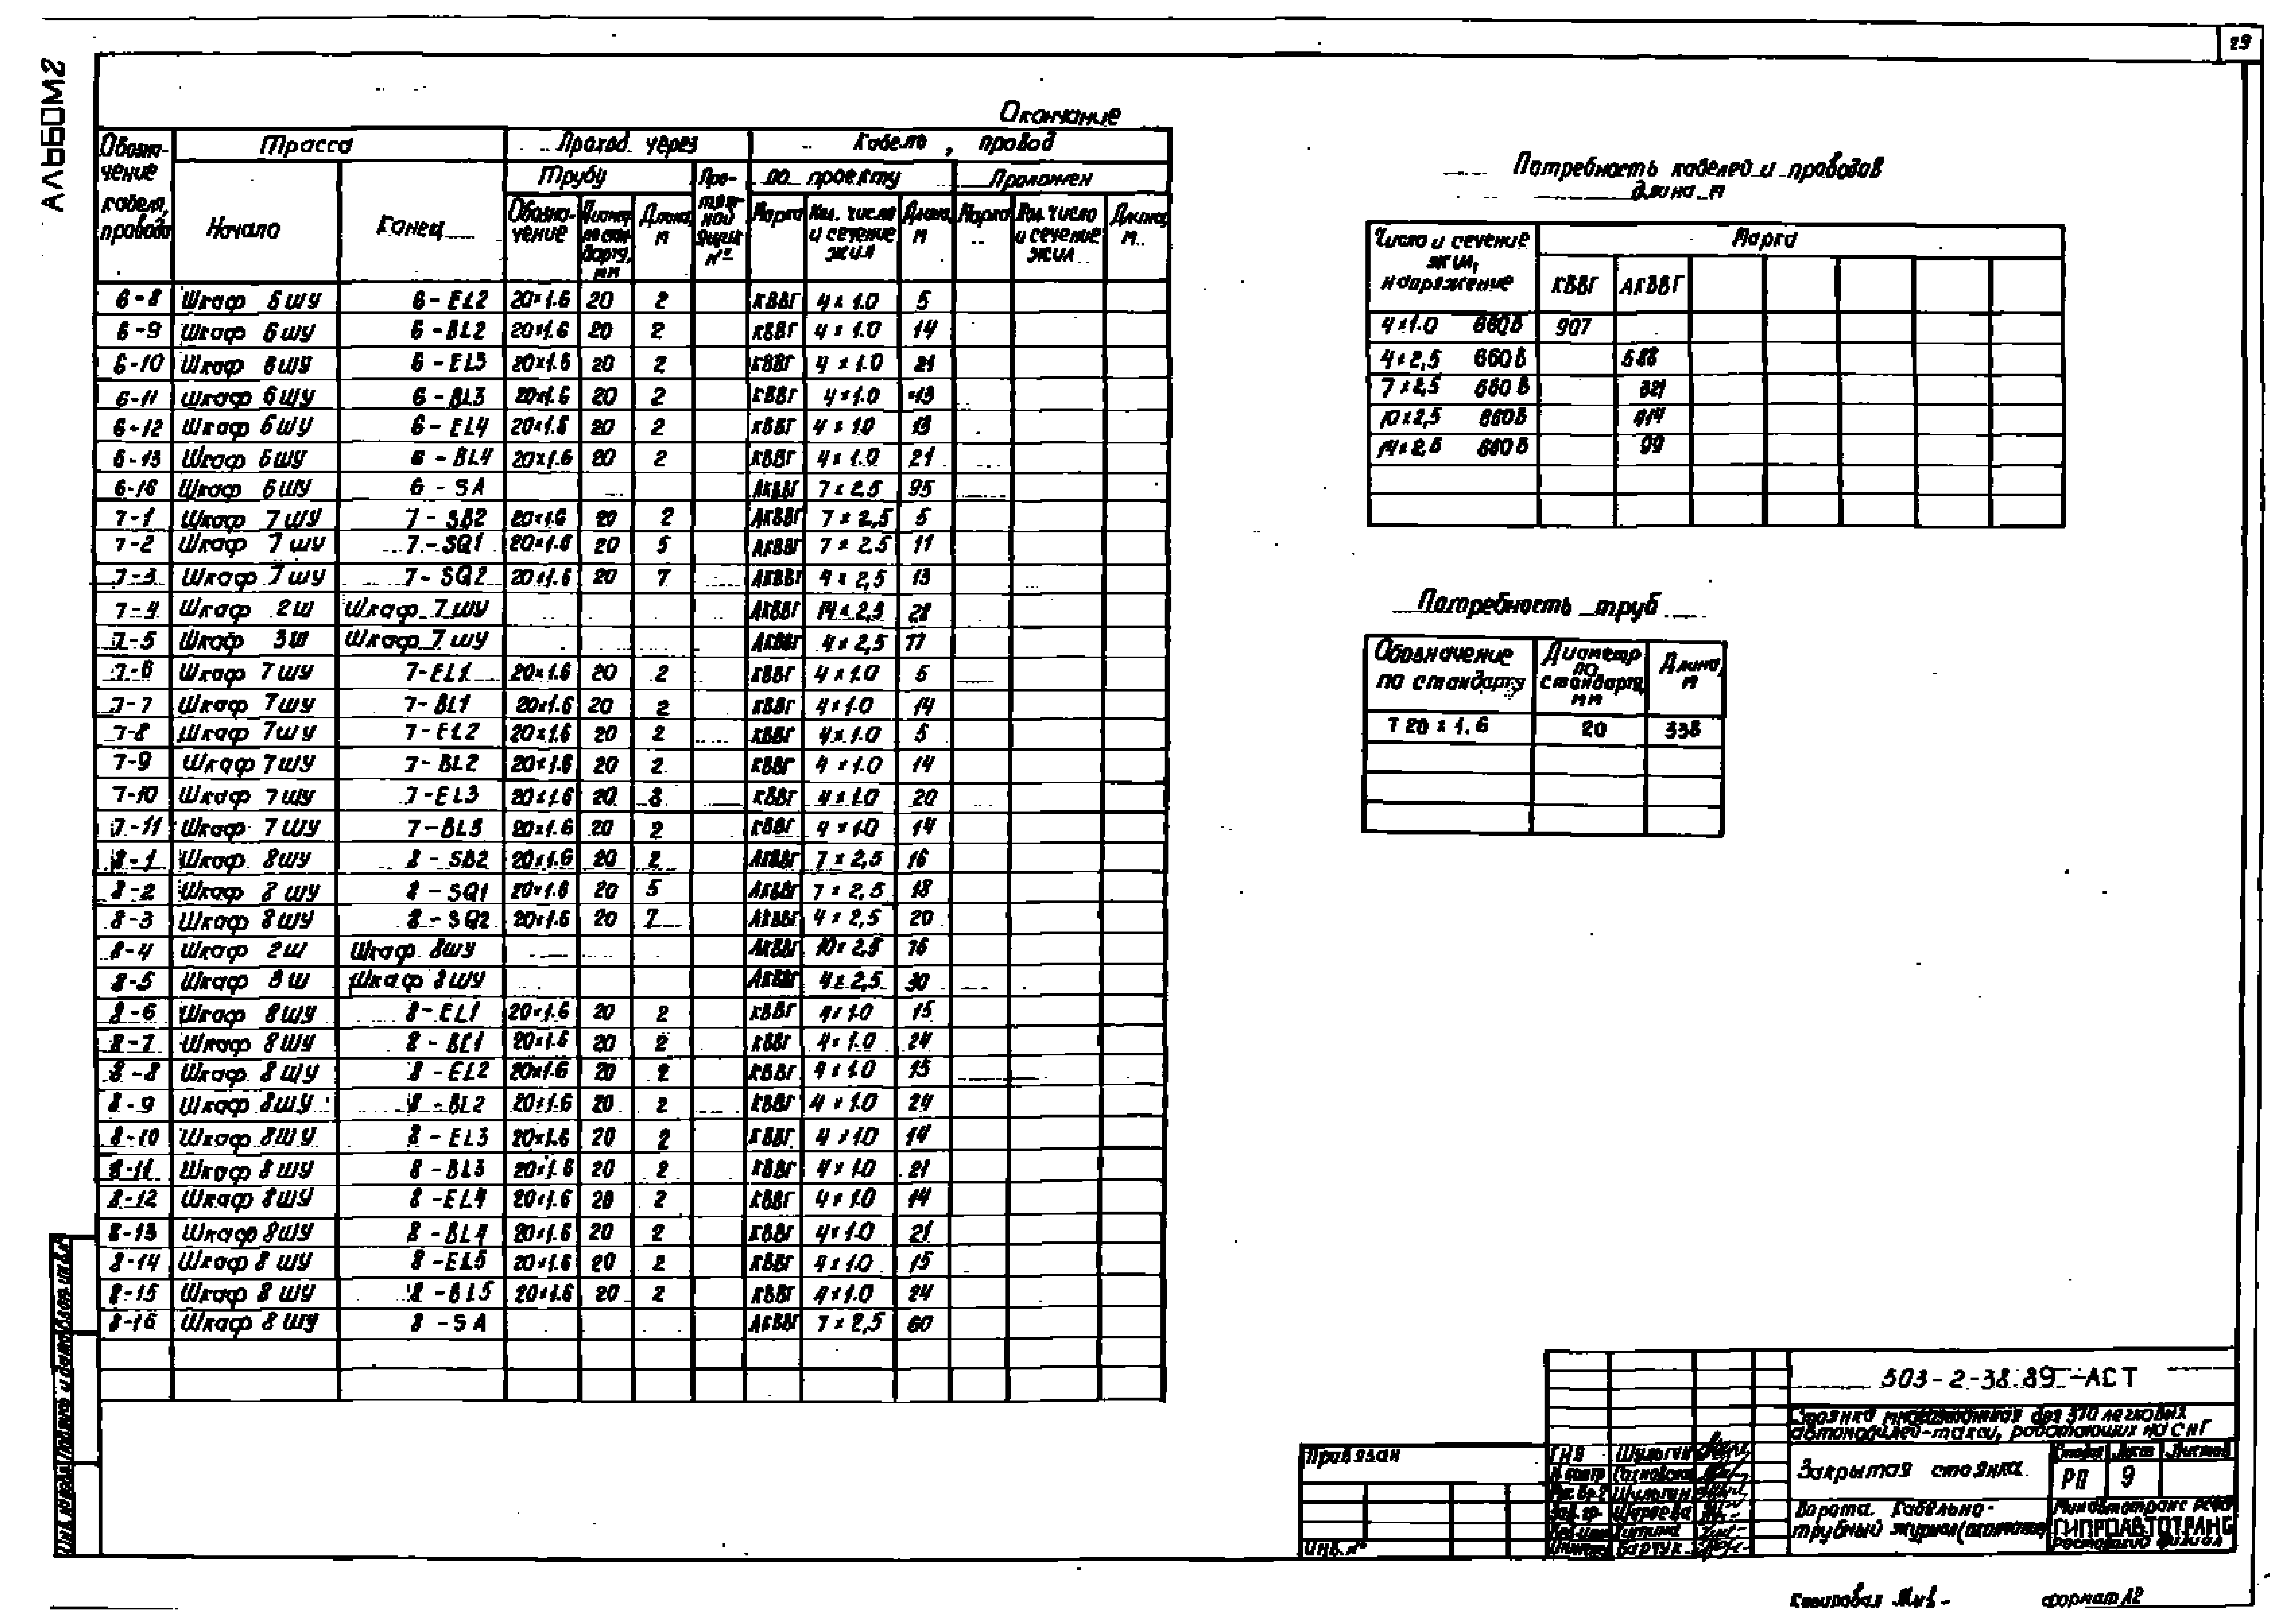 29
АЛЬБОМ 2
Окончание
Обозначение кабеля, провода | Трасса | Проход через | Кабель, провод
Трубу | Протяжной ящик № | по проекту | Проложен
Начало | Конец | Обозначение | Диаметр по стандарту, мм | Длина, м | Марка | Кол. число и сечение жил | Длина, м | Марка | Кол. число и сечение жил | Длина, м
6-8 Шкаф 6ШУ 6-EL2 20×1.6 20 2 КВВГ 4×1.0 5
6-9 Шкаф 6ШУ 6-BL2 20×1.6 20 2 КВВГ 4×1.0 14
6-10 Шкаф 6ШУ 6-EL3 20×1.6 20 2 КВВГ 4×1.0 21
6-11 Шкаф 6ШУ 6-BL3 20×1.6 20 2 КВВГ 4×1.0 13
6-12 Шкаф 6ШУ 6-EL4 20×1.6 20 2 КВВГ 4×1.0 13
6-13 Шкаф 6ШУ 6-BL4 20×1.6 20 2 КВВГ 4×1.0 21
6-16 Шкаф 6ШУ 6-SA АКВВГ 7×2.5 95
7-1 Шкаф 7ШУ 7-SB2 20×1.6 20 2 АКВВГ 7×2,5 5
7-2 Шкаф 7ШУ 7-SQ1 20×1.6 20 5 АКВВГ 7×2.5 11
7-3 Шкаф 7ШУ 7-SQ2 20×1.6 20 7 АКВВГ 4×2,5 13
7-4 Шкаф 2Ш Шкаф 7ШУ АКВВГ 14×2,5 28
7-5 Шкаф 3Ш Шкаф 7ШУ АКВВГ 4×2,5 77
7-6 Шкаф 7ШУ 7-EL1 20×1.6 20 2 КВВГ 4×1.0 5
7-7 Шкаф 7ШУ 7-BL1 20×1.6 20 2 КВВГ 4×1.0 14
7-8 Шкаф 7ШУ 7-EL2 20×1.6 20 2 КВВГ 4×1.0 5
7-9 Шкаф 7ШУ 7-BL2 20×1.6 20 2 КВВГ 4×1.0 14
7-10 Шкаф 7ШУ 7-EL3 20×1.6 20 8 КВВГ 4×1.0 20
7-11 Шкаф 7ШУ 7-BL3 20×1.6 20 2 КВВГ 4×1.0 14
8-1 Шкаф 8ШУ 8-SB2 20×1.6 20 2 АКВВГ 7×2,5 16
8-2 Шкаф 8ШУ 8-SQ1 20×1.6 20 5 АКВВГ 7×2,5 18
8-3 Шкаф 8ШУ 8-SQ2 20×1.6 20 7 АКВВГ 4×2,5 20
8-4 Шкаф 2Ш Шкаф 8ШУ АКВВГ 10×2,5 76
8-5 Шкаф 3Ш Шкаф 8ШУ АКВВГ 4×2,5 30
8-6 Шкаф 8ШУ 8-EL1 20×1.6 20 2 КВВГ 4×1.0 15
8-7 Шкаф 8ШУ 8-BL1 20×1.6 20 2 КВВГ 4×1.0 24
8-8 Шкаф 8ШУ 8-EL2 20×1.6 20 2 КВВГ 4×1.0 15
8-9 Шкаф 8ШУ 8-BL2 20×1.6 20 2 КВВГ 4×1.0 24
8-10 Шкаф 8ШУ 8-EL3 20×1.6 20 2 КВВГ 4×1.0 14
8-11 Шкаф 8ШУ 8-BL3 20×1.6 20 2 КВВГ 4×1.0 21
8-12 Шкаф 8ШУ 8-EL4 20×1.6 20 2 КВВГ 4×1.0 14
8-13 Шкаф 8ШУ 8-BL4 20×1.6 20 2 КВВГ 4×1.0 21
8-14 Шкаф 8ШУ 8-EL5 20×1.6 20 2 КВВГ 4×1.0 15
8-15 Шкаф 8ШУ 8-BL5 20×1.6 20 2 КВВГ 4×1.0 24
8-16 Шкаф 8ШУ 8-SA АКВВГ 7×2,5 60
Потребность кабелей и проводов
длина м
Число и сечение жил, напряжение | Марка
КВВГ АКВВГ
4×1.0 660В 907
4×2,5 660В 588
7×2,5 660В 321
10×2,5 660В 414
14×2,5 660В 99
Потребность труб
Обозначение по стандарту | Диаметр по стандарту, мм | Длина, м
Т 20×1.6 20 338
503-2-38.89-АСТ
Стоянка многоэтажная для 370 легковых
автомобилей-такси, работающих на СНГ
Закрытая стоянка
Стадия Лист Листов
РП 9
Ворота. Кабельно-
трубный журнал (окончание)
Минавтотранс РСФСР
ГИПРОАВТОТРАНС
Ростовский филиал
Привязан
Инв.№
ГИП Шульгин
Н.контр
Рук.бр.2 Шульгин
Зав.гр.
Инв.№ подл. Подпись и дата Взам.инв.№
Копировал
формат А2